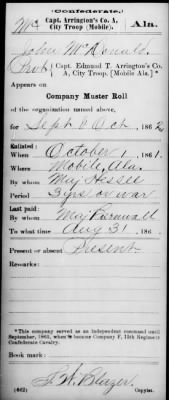 (Confederate.)
Mc Capt. Arrington's Co. A, City Troop (Mobile). Ala.
John McDaniels
Pvt Capt. Edmund T. Arrington's Co. A, City Troop, [Mobile Ala.]*
Appears on
Company Muster Roll
of the organization named above,
for Sept & Oct, 1862
Enlisted:
When October, 1861.
Where Mobile, Ala.
By whom Maj Hessee
Period 3 yrs or war
Last paid:
By whom Maj
To what time Aug 31, 186
Present or absent Present
Remarks:
*This company served as an independent command until
September, 1863, when it became Company F, 15th Regiment
Confederate Cavalry.
Book mark:
(642) J. W. Blazer Copyist.